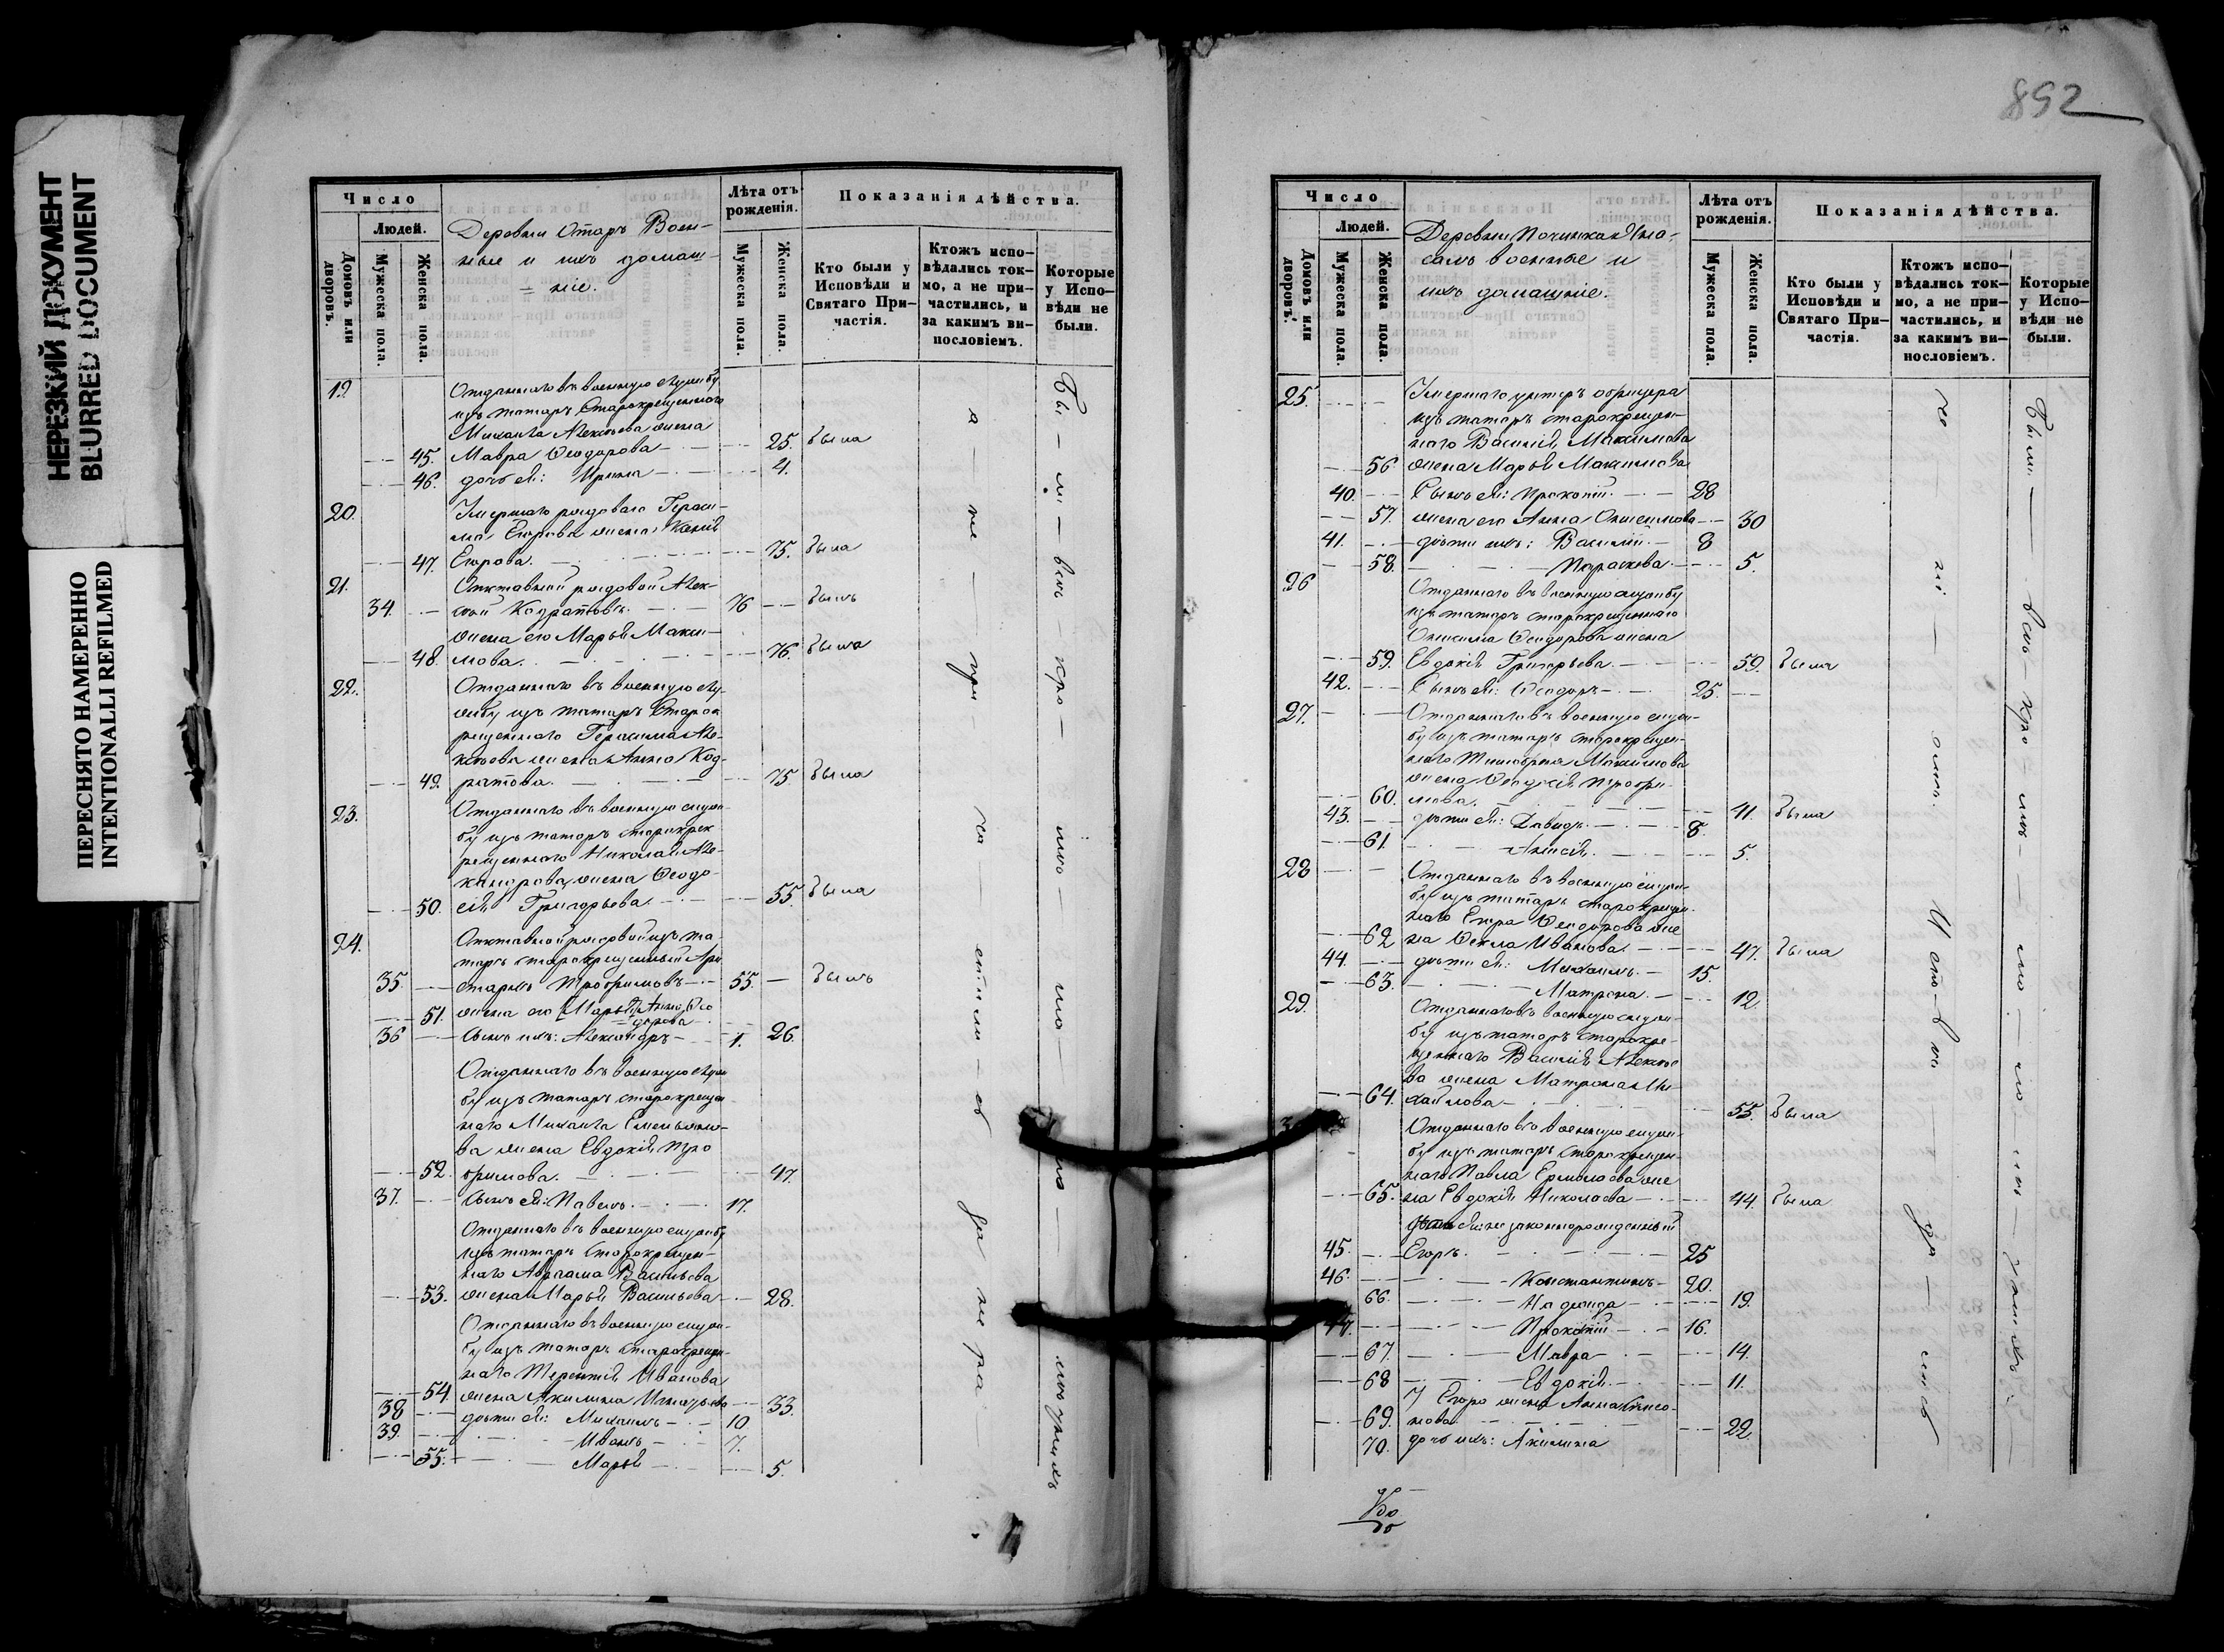 НЕРЕЗКИЙ ДОКУМЕНТ
BLURRED DOCUMENT
ПЕРЕСНЯТО НАМЕРЕННО
INTENTIONALLI REFILMED
Число
Людей.
Домовъ или дворовъ.
Мужеска пола.
Женска пола.
Деревни Отаръ Воен-
ные и ихъ домаш-
=ніе.
Лѣта отъ рожденія.
Мужеска пола.
Женска пола.
Показанія дѣйства.
Кто были у Исповѣди и Святаго При-частія.
Ктожъ испо-вѣдались ток-мо, а не при-частились, и за какимъ ви-пословіемъ.
Которые у Испо-вѣди не были.
19 Отданнаго въ военную службу
изъ татаръ Старокрещеннаго
Михаила Алексѣева жена
45. Мавра Ѳеодорова 25. была
46. дочь ея: Ирина 4.
20. Умершаго рядоваго Гераси-
ма Егорова жена
47. Егорова. 75. была
21. Отставной рядовой Алек-
34. сѣй Кодратовъ. 76 былъ
жена его Марья Макси-
48. мова. 76. была
22. Отданнаго въ военную слу-
жбу изъ татаръ Старок
рещеннаго Герасима Але-
ксѣева жена Анна Код-
49. ратова. 75. была
23. Отданнаго въ военную служ-
бу изъ татаръ старокрек
рещеннаго Николая Але-
ксандрова жена Ѳеодо-
50. сія Григорьева. 55 была
24. Отставной рядовой изъ та-
таръ старокрещенный Ари
35. стархъ Трофимовъ 55. былъ
51. жена его Марья Анна Ѳео
=дорова 26.
36 сынъ ихъ: Александръ 1.
Отданнаго въ военную служ
бу изъ татаръ старокрещен
наго Михаила Емельяно-
ва жена Евдокія Тро
52. фимова. 47.
37. сынъ ея: Павелъ. 17.
Отданнаго въ военную службу
изъ татаръ Старокрещен-
наго Авраама Васильева
53. жена Марья Васильева 28.
Отданнаго въ военную служ-
бу изъ татаръ Старокрещен-
наго Терентія Иванова
54 жена Акилина Игнатьева 33.
38 дѣти ея: Михаилъ 10
39. Иванъ 7.
55. Марья 5.
892
Число
Людей.
Домовъ или дворовъ.
Мужеска пола.
Женска пола.
Деревни Починка
военные и
ихъ домашніе.
Лѣта отъ рожденія.
Мужеска пола.
Женска пола.
Показанія дѣйства.
Кто были у Исповѣди и Святаго При-частія.
Ктожъ испо-вѣдались ток-мо, а не при-частились, и за какимъ ви-нословіемъ.
Которые у Испо-вѣди не были.
25. Умершаго унтеръ офицера
изъ татаръ старокрещен-
наго Василія Максимова
56 жена Марья Максимова
40. Сынъ ея: Прокопій. 28
57. жена его Анна Онисимова 30
41. дѣти ихъ: Василій 8
58. Параскева 5.
26 Отданнаго въ военную службу
изъ татаръ старокрещеннаго
Онисима Ѳеодорова жена
59. Евдокія Григорьева. 59. была
42. Сынъ ея: Ѳеодоръ 25.
27. Отданнаго въ военную служ-
бу изъ татаръ старокрещен-
наго Тимофея Максимова
жена Трофи-
60. мова. 41. была
43. дѣти ея: Давидъ. 8
61. Анисія. 5.
28 Отданнаго въ военную служ-
бу изъ татаръ старокрещен-
наго Егора Ѳеодорова же
62 на Ѳекла Иванова. 47. была
44. дѣти ея: Михаилъ. 15.
63. Матрона. 12.
29. Отданнаго въ военную служ-
бу изъ татаръ Старокре-
щеннаго Василія Алексѣе
ва жена Матрона Ми-
64. хайлова 55. была
Отданнаго въ военную служ-
бу изъ татаръ Старокрещен-
наго Павла Ермолаева же
65. на Евдокія Николаева 44. была
дѣти ея: незаконнорожденный
45. Егоръ. 25
46. Константинъ 20.
66. 19.
47. Прокопій 16.
67. Мавра 14.
68 Евдокія. 11.
У Егора жена Анна
69. нова. 22.
70. дочь ихъ: Акилина